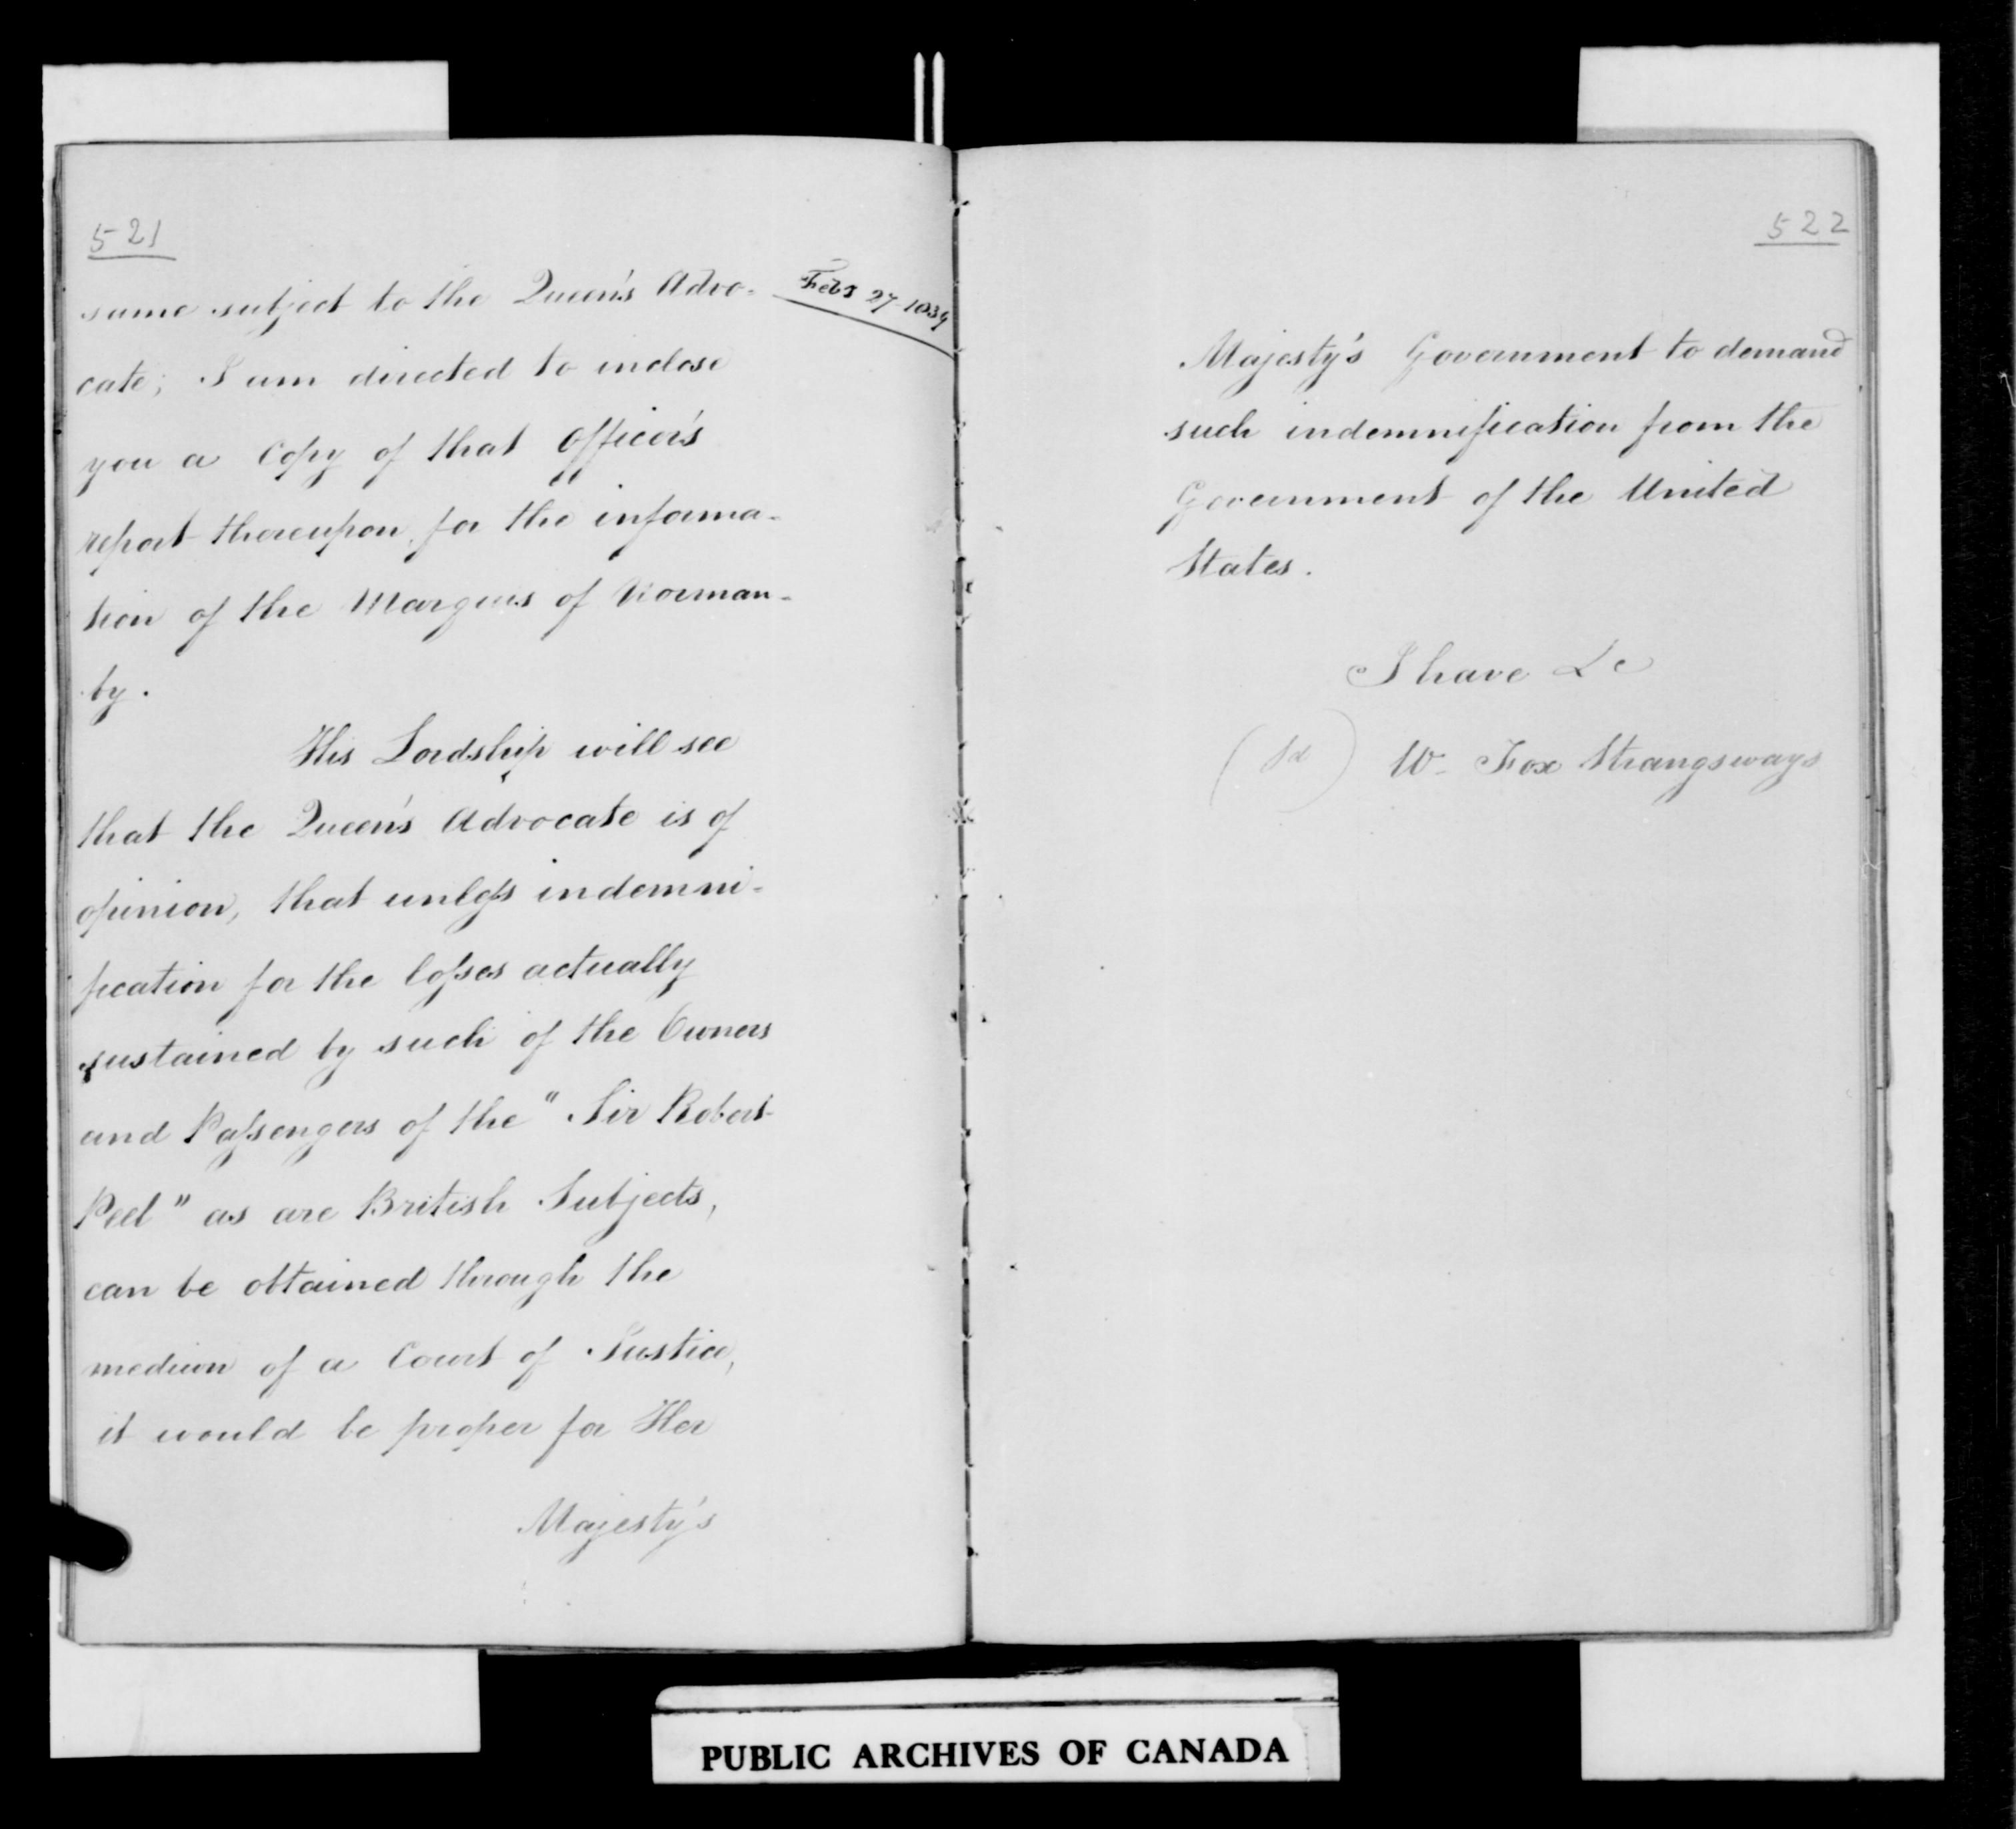 521
same subject to the Queen's Advo-
Feby 27 1839
cate; I am directed to inclose
you a Copy of that Officer's
report thereupon, for the informa-
tion of the Marquis of Norman-
by.
His Lordship will see
that the Queen's Advocate is of
opinion, that unless indemni-
fication for the losses actually
sustained by such of the Owners
and Passengers of the "Sir Robert
Peel" as are British Subjects,
can be obtained through the
medium of a Court of Justice,
it would be proper for Her
Majesty's
522
Majesty's Government to demand
such indemnification from the
Government of the United
States.
I have &c
(Sd) W. Fox Strangsways
PUBLIC ARCHIVES OF CANADA